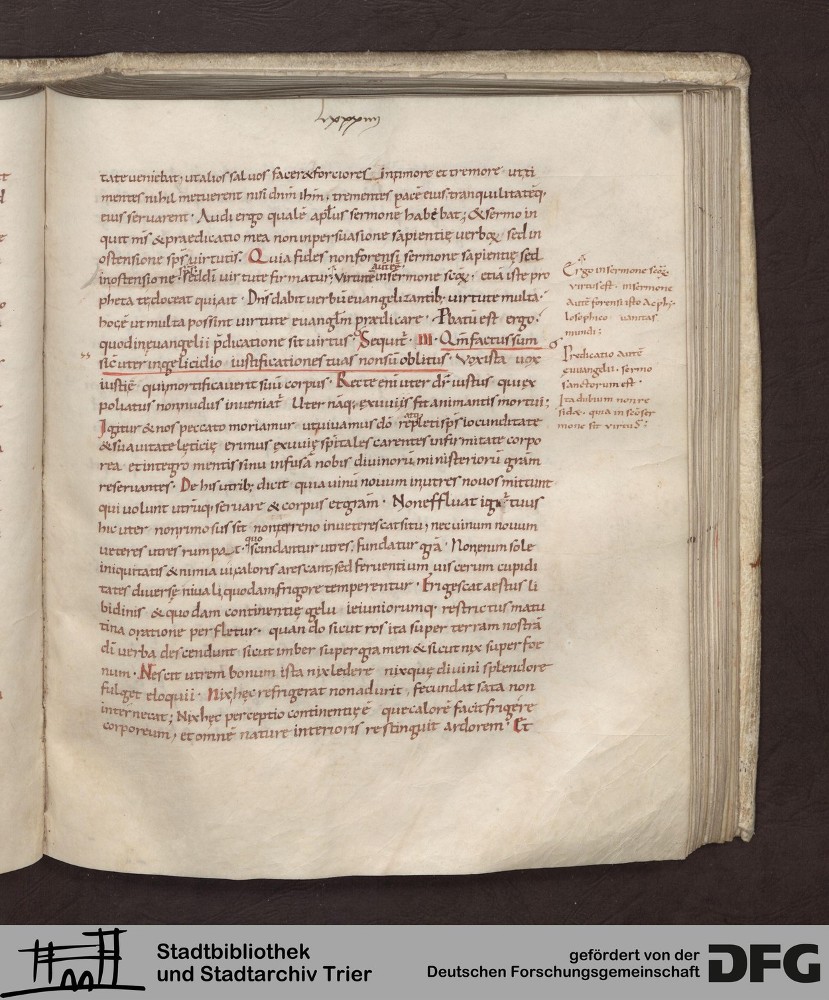 lxxxiiii
tate veniebat, ut alios saluos facer& forciores. In timore et tremore uti
mentes nihil metuerent nisi dnm ihm, trementes pacē eius tranquilitatēq;
eius seruarent. Audi ergo qualē aplus sermonē habebat; & sermo in
quit ms & praedicatio mea non in persuasione sapientię verboꝝ sed in
ostensione sps virtutis. Quia fides non forensi sermone sapientię sed
in ostensione sps & di uirtute firmatur. Virtute in sermone scōꝝ. etiā iste pro
pheta te doceat qui ait. Dns dabit verbū euangelizantib; uirtute multa.
hoc ē ut multa possint uirtute euanglm prædicare. Pbatū est ergo.
quod in euangelii p̄dicatione sit virtus. Sequit̄. III. Qm̄ factus sum
sic̄ uter in gelicidio iustificationes tuas non sū oblitus. Vox ista uox
iustic̄ę qui mortificauerit suū corpus. Recte enī uter dr̄ iustus qui ex
poliatus non nudus inueniat̄. Uter nāq; exuuiis fit animantis mortui;
Igitur & nos peccato moriamur ut uiuamus dō repleti sps iocunditate
& suauitate lęticię erimus exuuię spitales carentes infirmitate corpo
rea et integro mentis sinu infusā nobis diuinorū ministeriorū grām
reseruantes. De his utrib; dicit quia uinū nouum in utres nouos mittunt
qui uolunt utrūq; seruare & corpus et grām. Non effluat igit̄ tuus
hic uter non rimosus sit non terreno inueterescat situ, nec uinum nouum
ueteres utres rumpat. quo scindantur utres, fundatur grā. Non enim sole
iniquitatis & nimia ui caloris arescant, sed feruentium uiscerum cupidi
tates diuersę niuali quodam frigore temperentur. Frigescat aestus li
bidinis & quodam continentię gelu ieiuniorumq; restrictus matu
tina oratione perfletur. quando sicut ros ita super terram nostrā
di verba descendunt sicut imber super gramen & sicut nix super foe
num. Nescit utrem bonum ista nix ledere nix quę diuini splendore
fulget eloquii. Nix hęc refrigerat non adurit, fecundat sata non
internecat; Nix hęc perceptio continentię ē quę calorē facit frigere
corporeum, et omnē naturę interioris restinguit ardorem. Et
Ergo in sermone scōꝝ
virtus est. in sermone
autē forensi isto ac phy
losophico uanitas
mundi;
Predicatio autē
euuangelii. sermo
sanctorum est.
Ita dubium non re
sidæ. quia in scō ser
mone sit virtus;
Stadtbibliothek
und Stadtarchiv Trier
gefördert von der
Deutschen Forschungsgemeinschaft
DFG